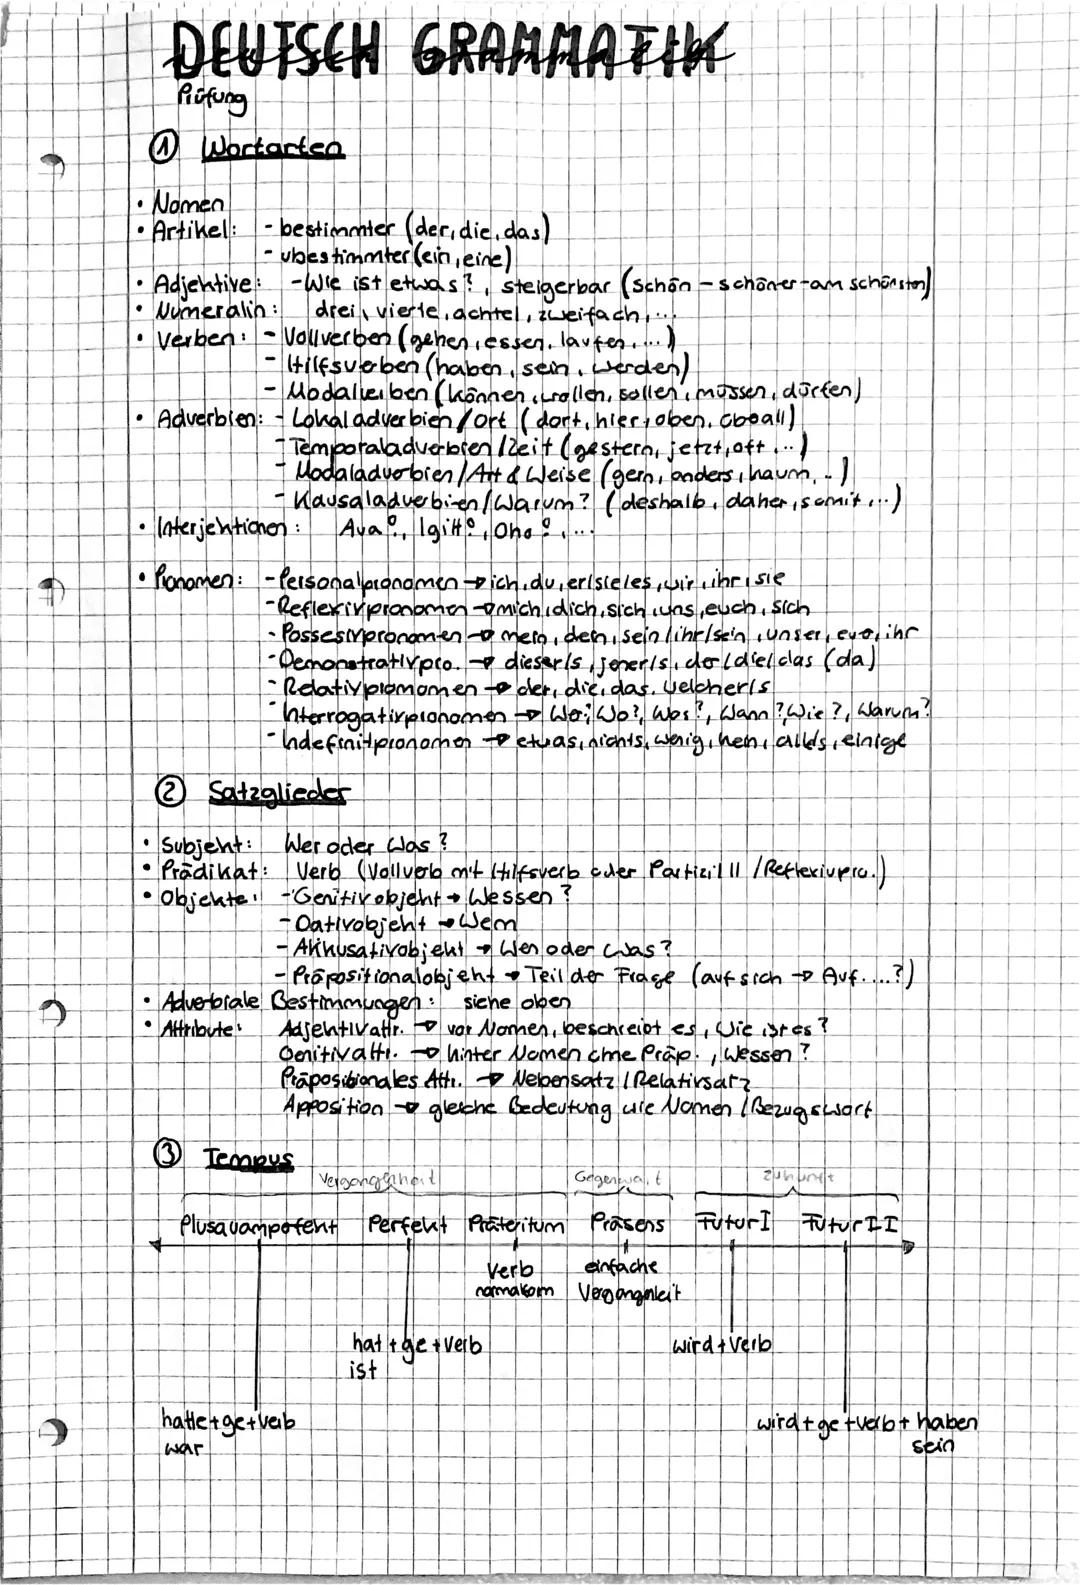 DEUTSCH GRAMMATIK
Prüfung
① Wortarten
• Nomen
• Artikel: - bestimmter (der, die, das)
- ubestimmter (ein, eine)
• Adjektive: - Wie ist etwas?, steigerbar (schön - schöner - am schönsten)
• Numeralin: drei, vierte, achtel, zweifach, ...
• Verben: - Vollverben (gehen, essen, laufen, ...)
- Hilfsverben (haben, sein, werden)
- Modalverben (können, wollen, sollen, müssen, dürfen)
• Adverbien: - Lokaladverbien / Ort (dort, hier, oben, überall)
- Temporaladverbien / Zeit (gestern, jetzt, oft ...)
- Modaladverbien / Art & Weise (gern, anders, kaum, ..)
- Kausaladverbien / Warum? (deshalb, daher, somit, ...)
• Interjektionen: Aua!, Igitt!, Oho!, ...
• Pronomen: - Personalpronomen → ich, du, er/sie/es, wir, ihr, sie
- Reflexivpronomen → mich, dich, sich, uns, euch, sich
- Possesivpronomen → mein, dein, sein/ihr/sein, unser, euer, ihr
- Demonstrativpro. → dieser/s, jener/s, der/die/das (da)
- Relativpronomen → der, die, das, welcher/s
- Interrogativpronomen → Wer?, Wo?, Was?, Wann?, Wie?, Warum?
- Indefinitpronomen → etwas, nichts, wenig, kein, alles, einige
② Satzglieder
• Subjekt: Wer oder Was?
• Prädikat: Verb (Vollverb mit Hilfsverb oder Partizil II / Reflexivpro.)
• Objekte: - Genitivobjekt → Wessen?
- Dativobjekt → Wem
- Akkusativobjekt → Wen oder Was?
- Präpositionalobjekt → Teil der Frage (auf sich → Auf....?)
• Adverbiale Bestimmungen: siehe oben
• Attribute: Adjektivattr. → vor Nomen, beschreibt es, Wie ist es?
Genitivattr. → hinter Nomen ohne Präp., Wessen?
Präpositionales Attr. → Nebensatz / Relativsatz
Apposition → gleiche Bedeutung wie Nomen / Bezugswort
③ Tempus
Vergangenheit Gegenwart Zukunft
Plusquamperfekt Perfekt Präteritum Präsens Futur I Futur II
Verb einfache
normalform Vergangenheit
hat + ge + Verb wird + Verb
ist
hatte + ge + Verb wird + ge + Verb + haben
war sein